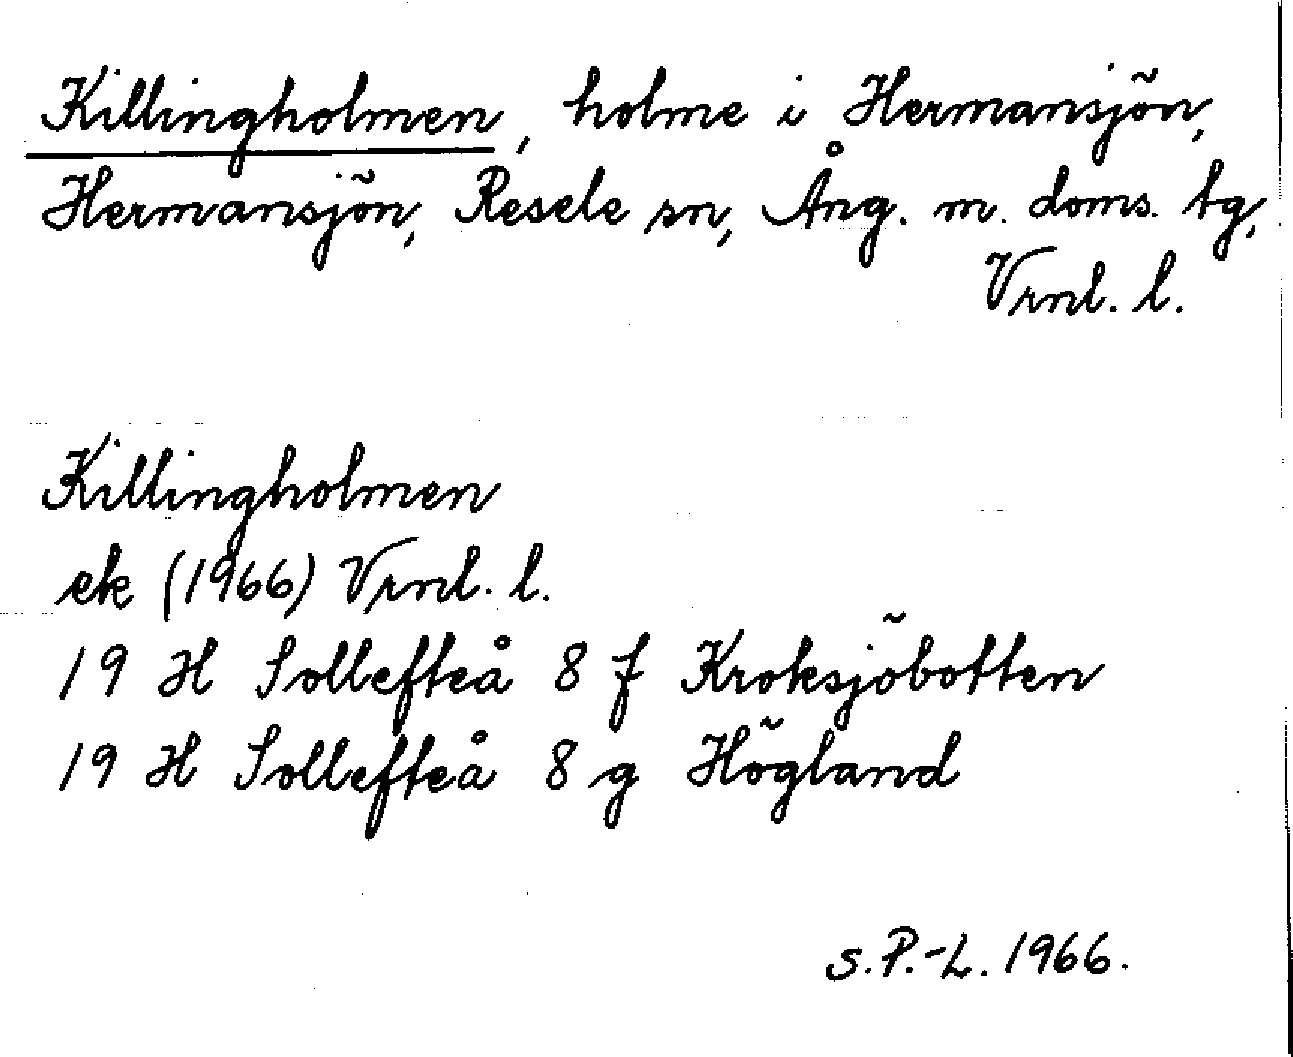 Killingholmen, holme i Hermansjön,
Hermansjön, Resele sn, Ång. m. doms. tg,
Vrnl. l.
Killingholmen
ek (1966) Vrnl. l.
19 H Sollefteå 8 f Kroksjöbotten
19 H Sollefteå 8 g Högland
S.P.-L. 1966.